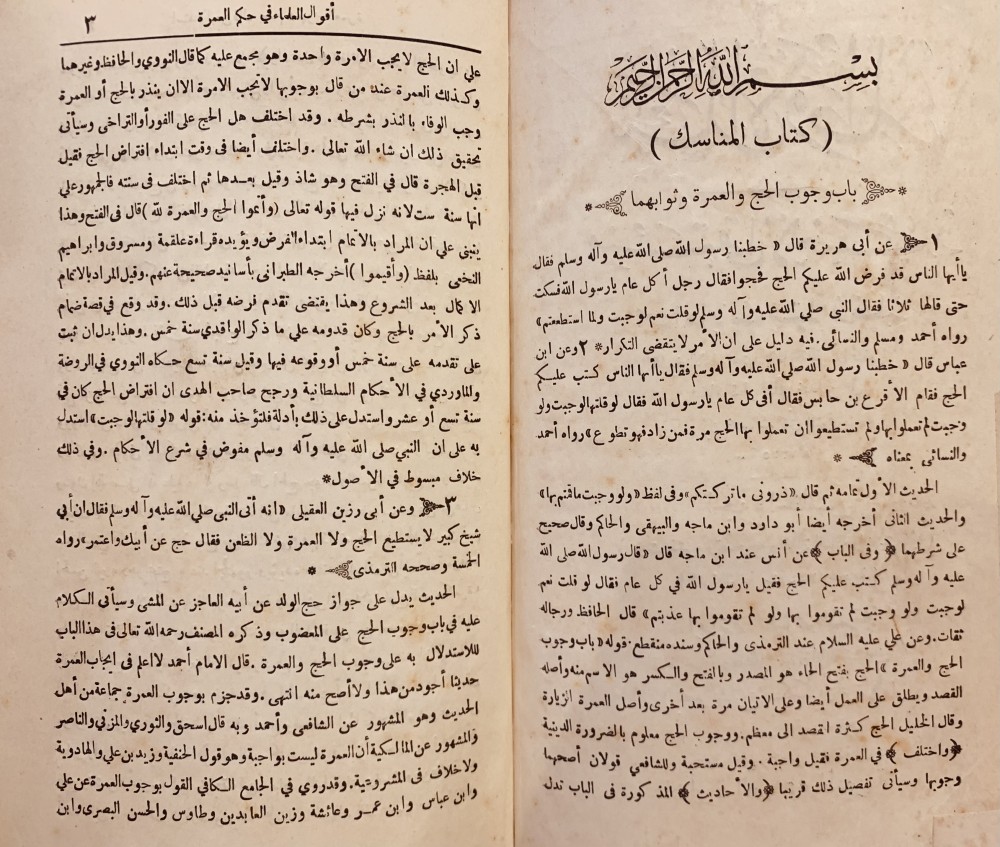 بسم الله الرحمن الرحيم
( كتاب المناسك )
* باب وجوب الحج والعمرة وثوابهما *
١ عن أبى هريرة قال « خطبنا رسول الله صلى الله عليه وآله وسلم فقال
ياأيها الناس قد فرض الله عليكم الحج فحجوا فقال رجل أكل عام يارسول الله فسكت
حتى قالها ثلاثا فقال النبي صلى الله عليه وآله وسلم لو قلت نعم لوجبت ولما استطعتم»
رواه أحمد ومسلم والنسائى. فيه دليل على ان الأمر لا يقتضى التكرار * ٢ وعن ابن
عباس قال « خطبنا رسول الله صلى الله عليه وآله وسلم فقال ياأيها الناس كتب عليكم
الحج فقام الأقرع بن حابس فقال أفى كل عام يارسول الله فقال لو قلتها لوجبت ولو
وجبت لم تعملوا بها ولم تستطيعوا ان تعملوا بها الحج مرة فمن زاد فهو تطوع » رواه أحمد
والنسائى بمعناه *
الحديث الأول تمامه ثم قال «ذرونى ماتركتكم» وفى لفظ «ولو وجبت ماقمتم بها»
والحديث الثانى أخرجه أيضا أبو داود وابن ماجه والبيهقى والحاكم وقال صحيح
على شرطهما ﴿ وفى الباب ﴾ عن أنس عند ابن ماجه قال «قال رسول الله صلى الله
عليه وآله وسلم كتب عليكم الحج فقيل يارسول الله في كل عام فقال لو قلت نعم
لوجبت ولو وجبت لم تقوموا بها ولو لم تقوموا بها عذبتم» قال الحافظ ورجاله
ثقات. وعن علي عليه السلام عند الترمذى والحاكم وسنده منقطع. قوله « باب وجوب
الحج والعمرة » الحج بفتح الحاء هو المصدر وبالفتح والكسر هو الاسم منه وأصله
القصد ويطلق على العمل أيضا وعلى الاتيان مرة بعد أخرى وأصل العمرة الزيارة
وقال الخليل الحج كثرة القصد الى معظم. ووجوب الحج معلوم بالضرورة الدينية
﴿ واختلف ﴾ في العمرة فقيل واجبة . وقيل مستحبة وللشافعي قولان أصحهما
وجوبها وسيأتى تفصيل ذلك قريبا ﴿ والأحاديث ﴾ المذكورة فى الباب تدل
أقوال العلماء في حكم العمرة ٣
علي ان الحج لايجب الامرة واحدة وهو مجمع عليه كما قال النووي والحافظ وغيرهما
وكذلك العمرة عند من قال بوجوبها لاتجب الامرة الاان ينذر بالحج أو العمرة
وجب الوفاء بالنذر بشرطه . وقد اختلف هل الحج على الفور أو التراخى وسيأتى
تحقيق ذلك ان شاء الله تعالى . واختلف أيضا فى وقت ابتداء افتراض الحج فقيل
قبل الهجرة قال في الفتح وهو شاذ وقيل بعدها ثم اختلف فى سنته فالجمهور علي
انها سنة ست لانه نزل فيها قوله تعالى (وأتموا الحج والعمرة لله) قال فى الفتح وهذا
ينبنى علي ان المراد بالاتمام ابتداء الفرض ويؤيده قراءة علقمة ومسروق وابراهيم
النخعى بلفظ (وأقيموا) أخرجه الطبرانى بأسانيد صحيحة عنهم. وقيل المراد بالاتمام
الاكمال بعد الشروع وهذا يقتضى تقدم فرضه قبل ذلك . وقد وقع في قصة ضمام
ذكر الأمر بالحج وكان قدومه علي ما ذكر الواقدي سنة خمس . وهذا يدل ان ثبت
على تقدمه على سنة خمس أو وقوعه فيها وقيل سنة تسع حكاه النووي في الروضة
والماوردي في الأحكام السلطانية ورجح صاحب الهدى ان افتراض الحج كان في
سنة تسع أو عشر واستدل على ذلك بأدلة فلتؤخذ منه : قوله «لو قلتها لوجبت» استدل
به على ان النبي صلى الله عليه وآله وسلم مفوض في شرع الأحكام . وفي ذلك
خلاف مبسوط في الأصول *
٣ وعن أبى رزين العقيلى « انه أتى النبى صلى الله عليه وآله وسلم فقال ان أبي
شيخ كبير لا يستطيع الحج ولا العمرة ولا الظعن فقال حج عن أبيك واعتمر » رواه
الخمسة وصححه الترمذى *
الحديث يدل على جواز حج الولد عن أبيه العاجز عن المشى وسيأتى الكلام
عليه في باب وجوب الحج على المعضوب وذكره المصنف رحمه الله تعالى فى هذا الباب
للاستدلال به على وجوب الحج والعمرة . قال الامام أحمد لا اعلم فى ايجاب العمرة
حديثا أجود من هذا ولا أصح منه انتهى . وقد جزم بوجوب العمرة جماعة من أهل
الحديث وهو المشهور عن الشافعى وأحمد وبه قال اسحق والثوري والمزني والناصر
والمشهور عن المالكية أن العمرة ليست بواجبة وهو قول الحنفية وزيد بن علي والهادوية
ولا خلاف فى المشروعية. وقد روي في الجامع الكافي القول بوجوب العمرة عن علي
وابن عباس وابن عمر وعائشة وزين العابدين وطاوس والحسن البصرى وابن